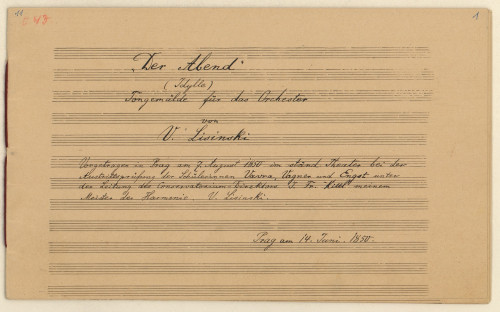 11
1
„Der Abend“
(Idylle)
Tongemälde für das Orchester
von
V. Lisinski
Vorgetragen in Prag am 7. August 1850 im ständ. Theater bei der
Austrittsprüfung der Schülerinnen Vavra, Vagner und Engst unter
der Leitung des Conservatoriums-Directors J. Fr. Kittl meinem
Meister der Harmonie. V. Lisinski.
Prag am 14. Juni. 1850.